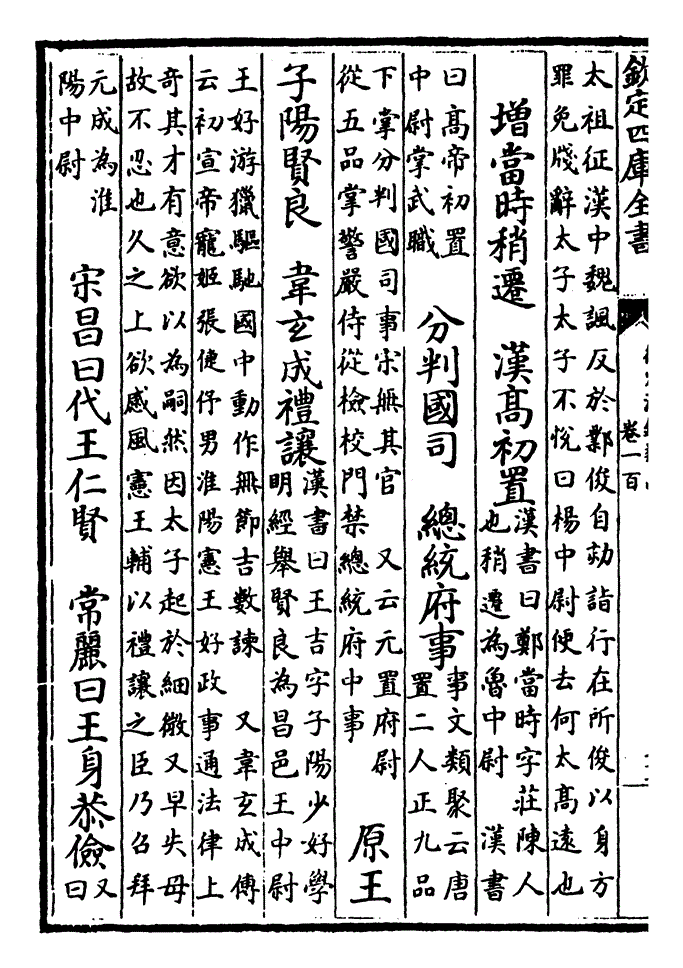 欽定四庫全書
卷一百
太祖征漢中魏諷反於鄴俊自劾詣行在所俊以身方
罪免牋辭太子太子不悅曰楊中尉便去何太高遠也
增當時稍遷 漢高初置
漢書曰鄭當時字莊陳人
也稍遷為魯中尉 漢書
曰高帝初置
中尉掌武職
分判國司 總統府事
事文類聚云唐
置二人正九品
下掌分判國司事宋無其官 又云元置府尉
從五品掌警嚴侍從檢校門禁總統府中事
原王
子陽賢良 韋玄成禮讓
漢書曰王吉字子陽少好學
明經舉賢良為昌邑王中尉
王好游獵驅馳國中動作無節吉數諫 又韋玄成傳
云初宣帝寵姬張倢伃男淮陽憲王好政事通法律上
奇其才有意欲以為嗣然因太子起於細微又早失母
故不忍也久之上欲感風憲王輔以禮讓之臣乃召拜
元成為淮
陽中尉
宋昌曰代王仁賢 常麗曰王身恭儉
又
曰